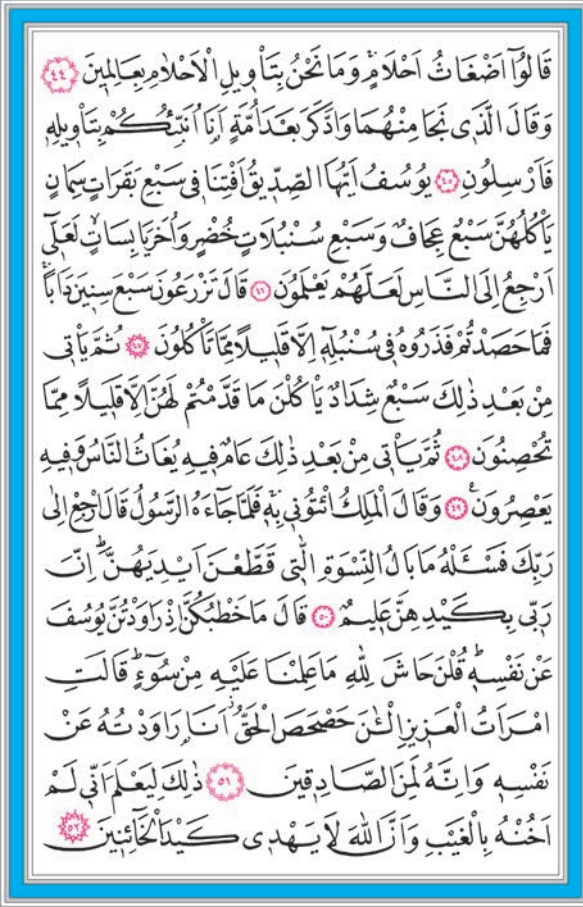 قَالُٓوا اَضْغَاثُ اَحْلَامٍۚ وَمَا نَحْنُ بِتَأْو۪يلِ الْاَحْلَامِ بِعَالِم۪ينَ ﴿٤٤﴾
وَقَالَ الَّذ۪ي نَجَا مِنْهُمَا وَادَّكَرَ بَعْدَ اُمَّةٍ اَنَا۬ اُنَبِّئُكُمْ بِتَأْو۪يلِه۪
فَاَرْسِلُونِ ﴿٤٥﴾ يُوسُفُ اَيُّهَا الصِّدّ۪يقُ اَفْتِنَا ف۪ي سَبْعِ بَقَرَاتٍ سِمَانٍ
يَأْكُلُهُنَّ سَبْعٌ عِجَافٌ وَسَبْعِ سُنْبُلَاتٍ خُضْرٍ وَاُخَرَ يَابِسَاتٍۙ لَعَلّ۪ٓي
اَرْجِعُ اِلَى النَّاسِ لَعَلَّهُمْ يَعْلَمُونَ ﴿٤٦﴾ قَالَ تَزْرَعُونَ سَبْعَ سِن۪ينَ دَاَبًاۚ
فَمَا حَصَدْتُمْ فَذَرُوهُ ف۪ي سُنْبُلِه۪ٓ اِلَّا قَل۪يلًا مِمَّا تَأْكُلُونَ ﴿٤٧﴾ ثُمَّ يَأْت۪ي
مِنْ بَعْدِ ذٰلِكَ سَبْعٌ شِدَادٌ يَأْكُلْنَ مَا قَدَّمْتُمْ لَهُنَّ اِلَّا قَل۪يلًا مِمَّا
تُحْصِنُونَ ﴿٤٨﴾ ثُمَّ يَأْت۪ي مِنْ بَعْدِ ذٰلِكَ عَامٌ ف۪يهِ يُغَاثُ النَّاسُ وَف۪يهِ
يَعْصِرُونَ۟ ﴿٤٩﴾ وَقَالَ الْمَلِكُ ائْتُون۪ي بِه۪ۚ فَلَمَّا جَٓاءَهُ الرَّسُولُ قَالَ ارْجِعْ اِلٰى
رَبِّكَ فَسْـَٔلْهُ مَا بَالُ النِّسْوَةِ الّٰت۪ي قَطَّعْنَ اَيْدِيَهُنَّۜ اِنَّ
رَبّ۪ي بِكَيْدِهِنَّ عَل۪يمٌ ﴿٥٠﴾ قَالَ مَا خَطْبُكُنَّ اِذْ رَاوَدْتُنَّ يُوسُفَ
عَنْ نَفْسِه۪ۜ قُلْنَ حَاشَ لِلّٰهِ مَا عَلِمْنَا عَلَيْهِ مِنْ سُٓوءٍۜ قَالَتِ
امْرَاَتُ الْعَز۪يزِ الْـٰٔنَ حَصْحَصَ الْحَقُّۘ اَنَا۬ رَاوَدْتُهُ عَنْ
نَفْسِه۪ وَاِنَّهُ لَمِنَ الصَّادِق۪ينَ ﴿٥١﴾ ذٰلِكَ لِيَعْلَمَ اَنّ۪ي لَمْ
اَخُنْهُ بِالْغَيْبِ وَاَنَّ اللّٰهَ لَا يَهْد۪ي كَيْدَ الْخَٓائِن۪ينَ ﴿٥٢﴾